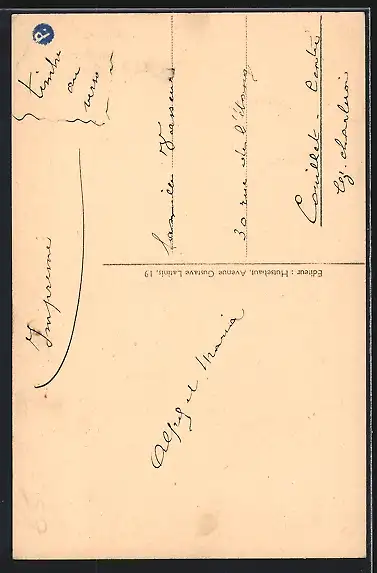 timbre
au
verso
Imprimé
famille Vasseur
30 rue de l'étang
Couillet-Centre
lez-charleroi
Editeur : Hutsebaut, Avenue Gustave Latinis, 19
Alfred Maria